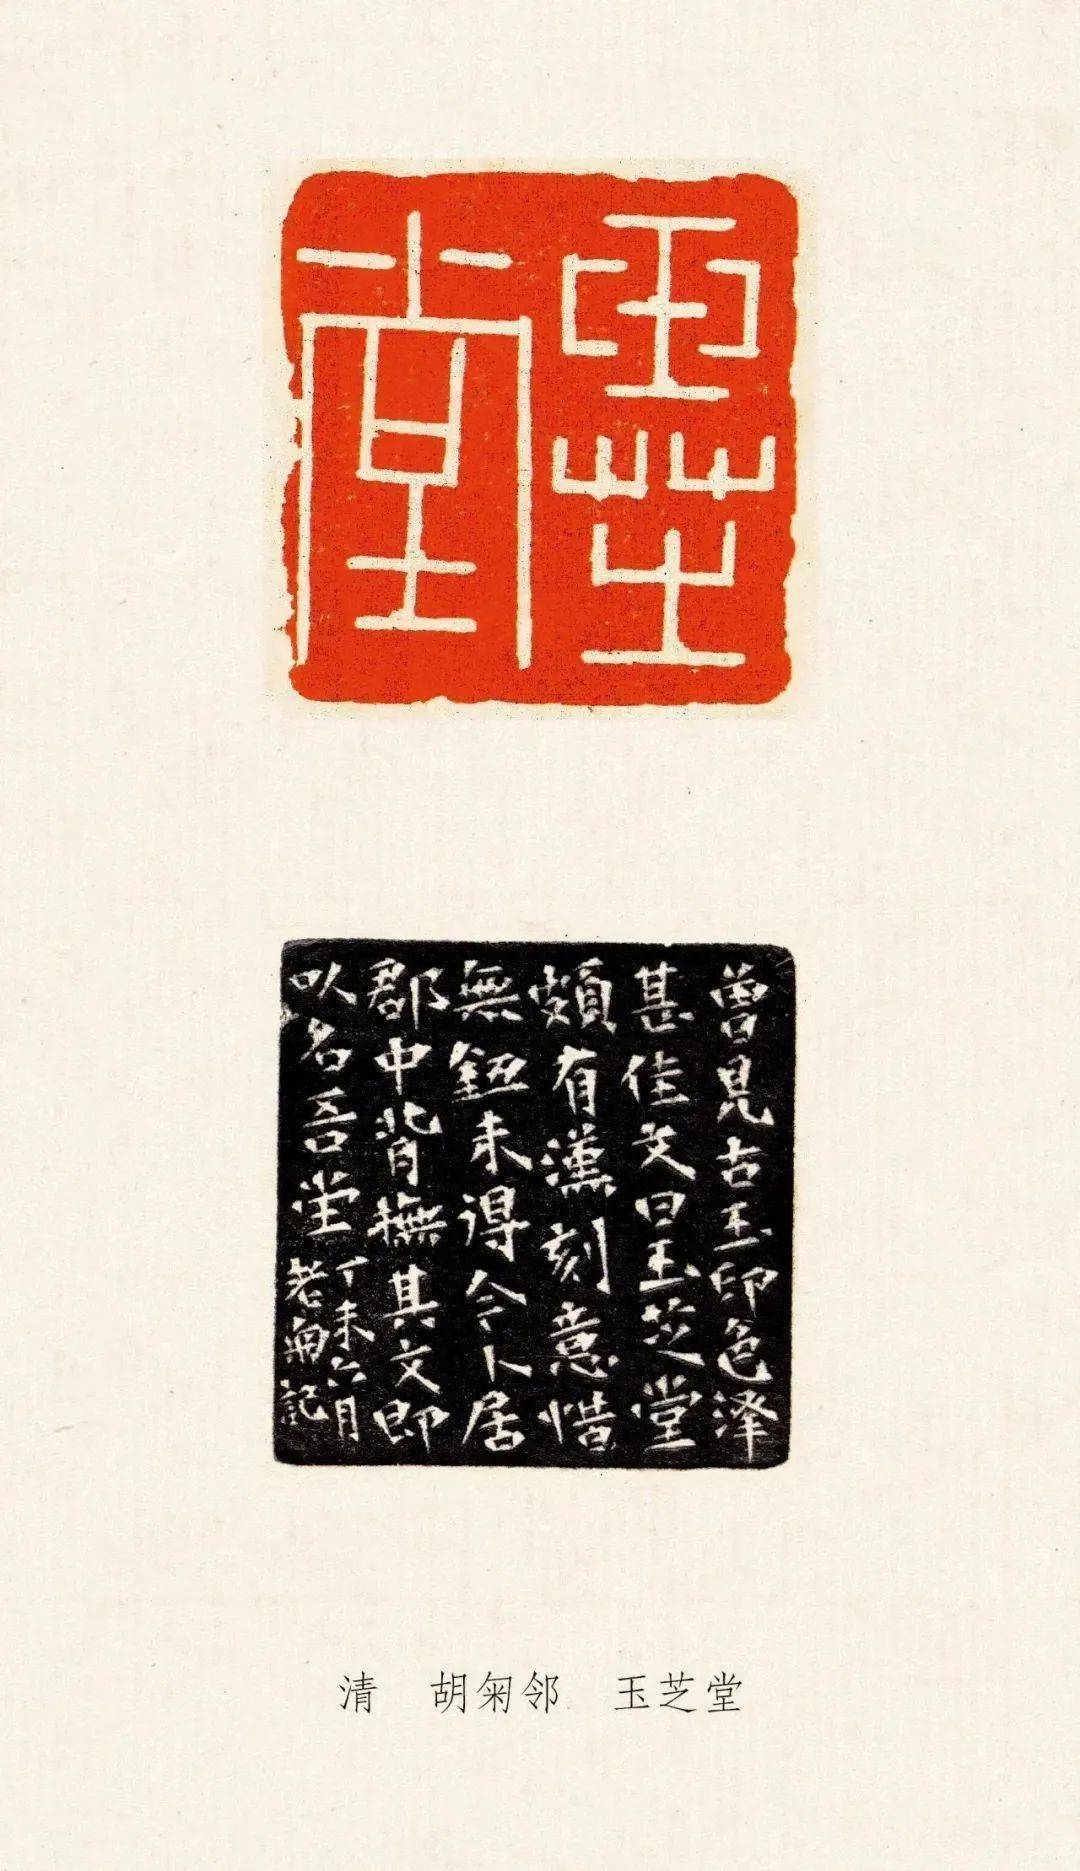 玉芝
堂
曾見古玉印色澤
甚佳文曰玉芝堂
頗有漢刻意惜
無鈕未得今卜居
郡中背橅其文即
以名吾堂
丁未六月
老匊記
清 胡匊邻 玉芝堂